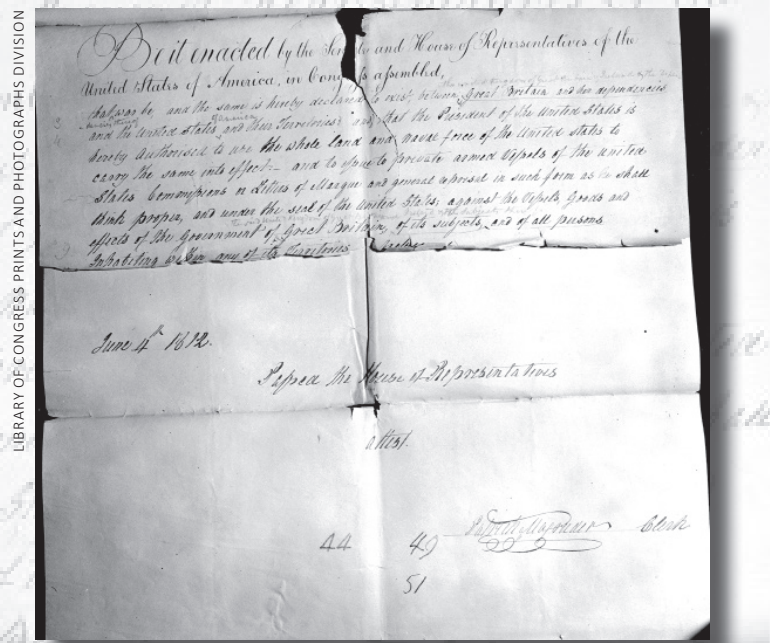 LIBRARY OF CONGRESS PRINTS AND PHOTOGRAPHS DIVISION
Be it enacted by the Senate and House of Representatives of the
United States of America, in Congress assembled,
that war be and the same is hereby declared to exist between Great Britain and her dependencies
and the United States and their Territories and that the President of the United States is
hereby authorised to use the whole land and naval force of the United States to
carry the same into effect:- and to issue to private armed Vessels of the United
States Commissions or Letters of Marque and general reprisal in such form as he shall
think proper, and under the seal of the United States, against the Vessels, Goods and
effects of the Government of Great Britain, of its subjects, and of all persons
inhabiting within any of its Territories
June 4th 1812.
Passed the House of Representatives
attest.
Clerk
44 49
51